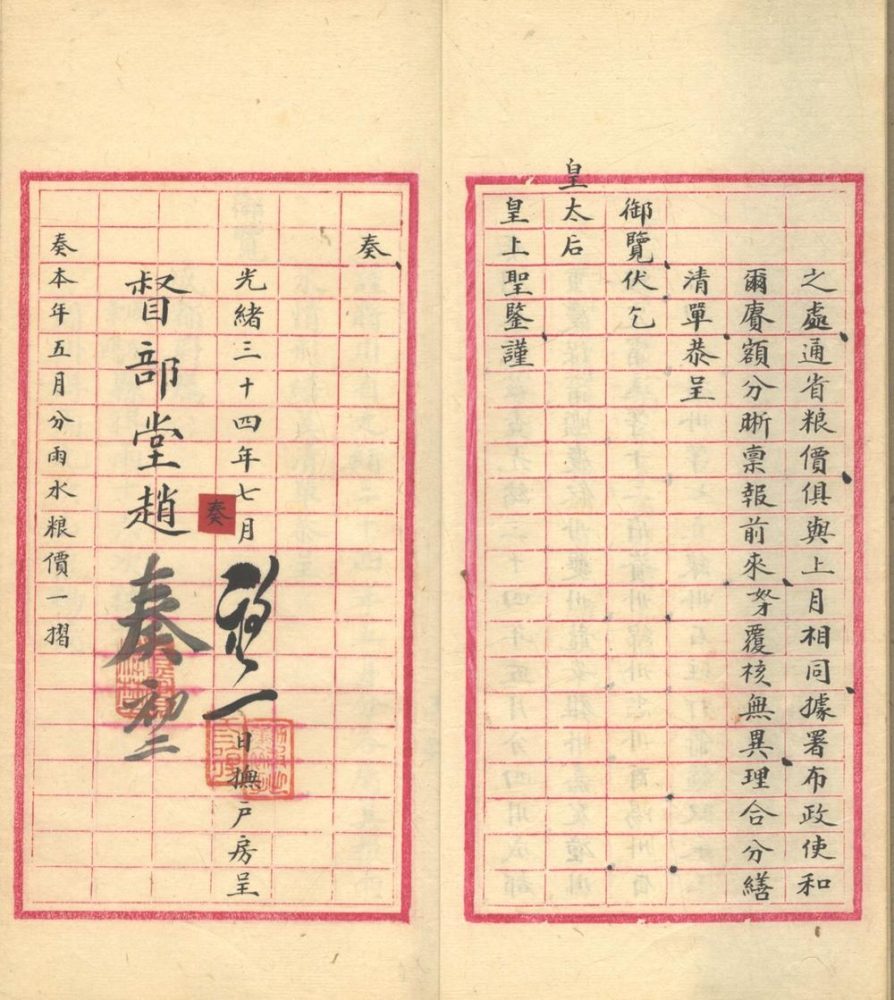 之處通省粮價俱與上月相同據署布政使和
爾賡額分晰禀報前來努覆核無異理合分繕
清單恭呈
御覽伏乞
皇太后
皇上聖鑒謹
奏
光緒三十四年七月
初一日撫户房呈
奏
督部堂趙
奏 初二
奏本年五月分雨水粮價一摺